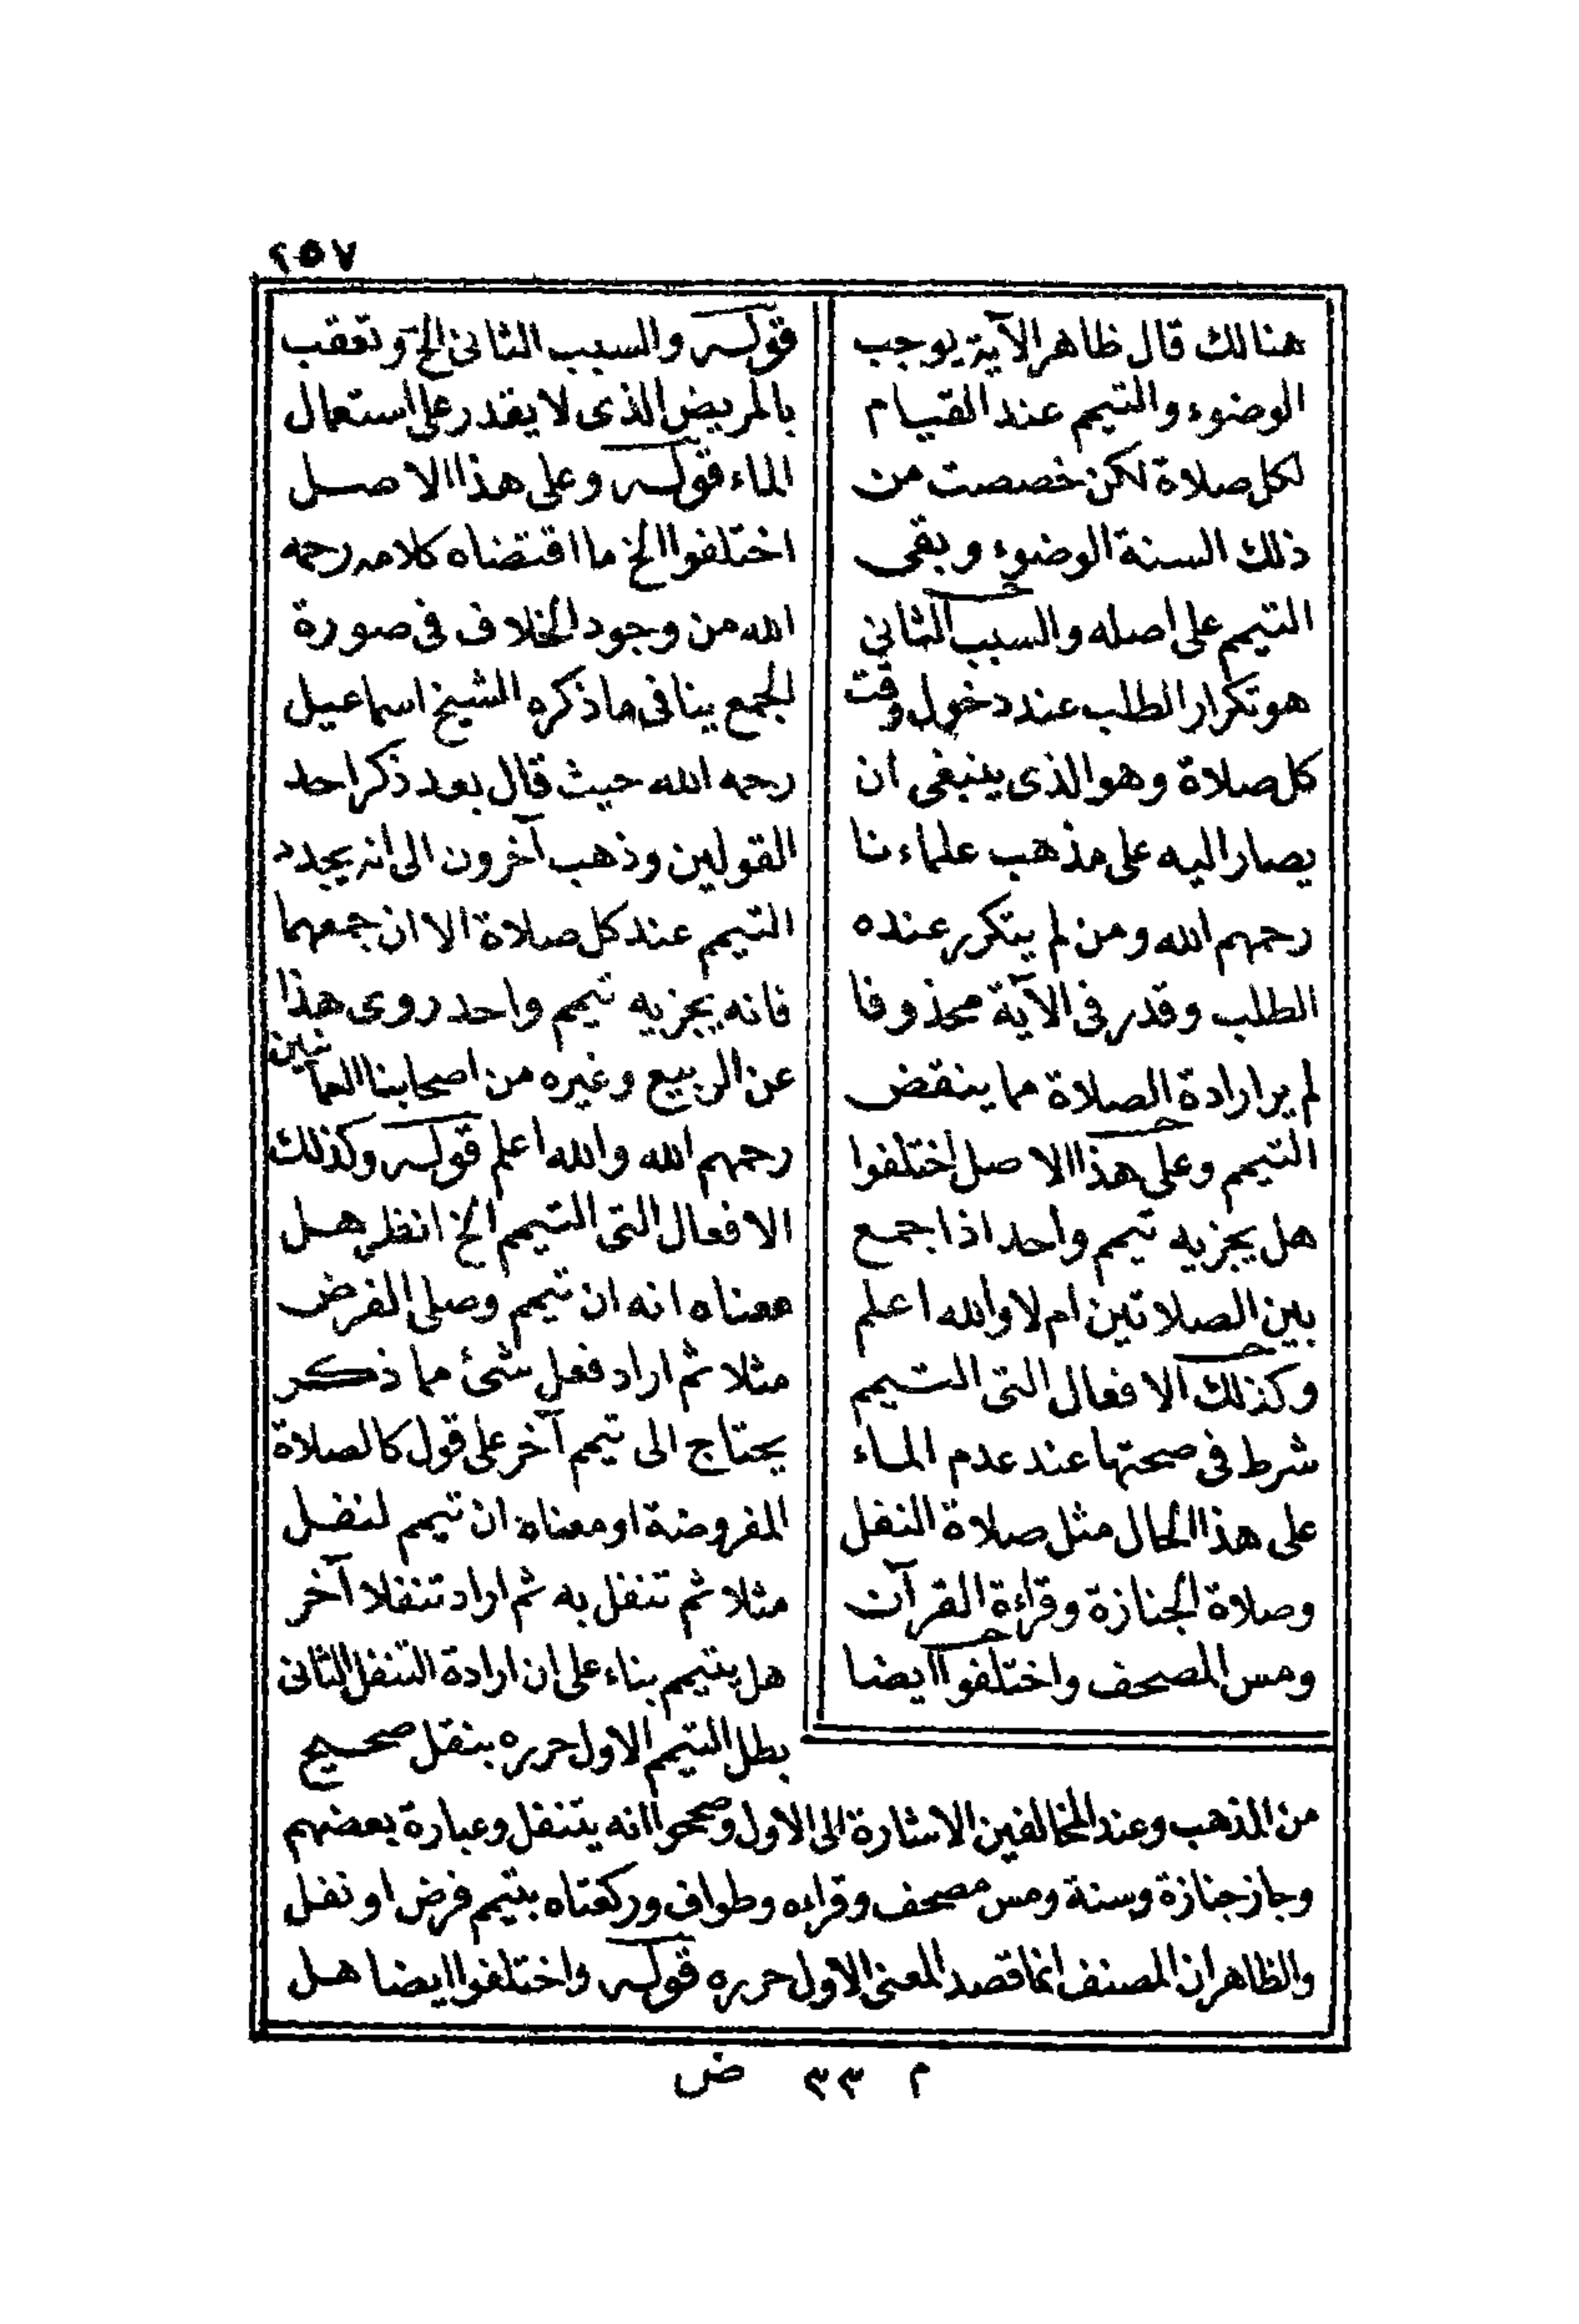 ٢٥٧
هنالك قال ظاهر الآية يوجب
الوضوء والتيمم عند القيام
لكل صلاة لكن خصصت من
ذلك السنة الوضوء وبقى
التيمم على اصله والسبب الثانى
هو تكرار الطلب عند دخول وقت
كل صلاة وهو الذى ينبغى ان
يصار اليه على مذهب علماءنا
رحمهم الله ومن لم يتكرر عنده
الطلب وقدر فى الآية محذوفا
لم ير ارادة الصلاة مما ينقض
التيمم وعلى هذا الاصل اختلفوا
هل يجزيه تيمم واحد اذا جمع
بين الصلاتين ام لا والله اعلم
وكذلك الافعال التى التيمم
شرط فى صحتها عند عدم الماء
على هذا الحال مثل صلاة النفل
وصلاة الجنازة وقراءة القرآن
ومس المصحف واختلفوا ايضا
قوله والسبب الثانى الخ وتعقب
بالمريض الذى لا يقدر على استعمال
الماء قوله وعلى هذا الاصل
اختلفوا الخ ما اقتضاه كلامه رحمه
الله من وجود الخلاف فى صورة
الجمع ينافى ما ذكره الشيخ اسماعيل
رحمه الله حيث قال بعد ذكر احد
القولين وذهب آخرون الى انه يجدد
التيمم عند كل صلاة الا ان جمعهما
فانه يجزيه تيمم واحد روى هذا
عن الربيع وغيره من اصحابنا العمانين
رحمهم الله والله اعلم قوله وكذلك
الافعال التى التيمم الخ انظر هل
معناه انه ان تيمم وصلى الفرض
مثلا ثم اراد فعل شئ مما ذكر
يحتاج الى تيمم آخر على قول كالصلاة
المفروضة او معناه ان تيمم لنفل
مثلا ثم تنفل به ثم اراد تنفلا آخر
هل يتيمم بناء على ان ارادة التنفل الثانى
بطل التيمم الاول حرره بنقل صحيح
من المذهب وعند المخالفين الاشارة الى الاول وصححوا انه يتنفل وعبارة بعضهم
وجاز جنازة وسنة ومس مصحف وقراءه وطواف وركعتاه بتيمم فرض او نفل
والظاهر ان المصنف انما قصد المعنى الاول حرره قوله واختلفوا ايضا هل
م ٣٣ ض